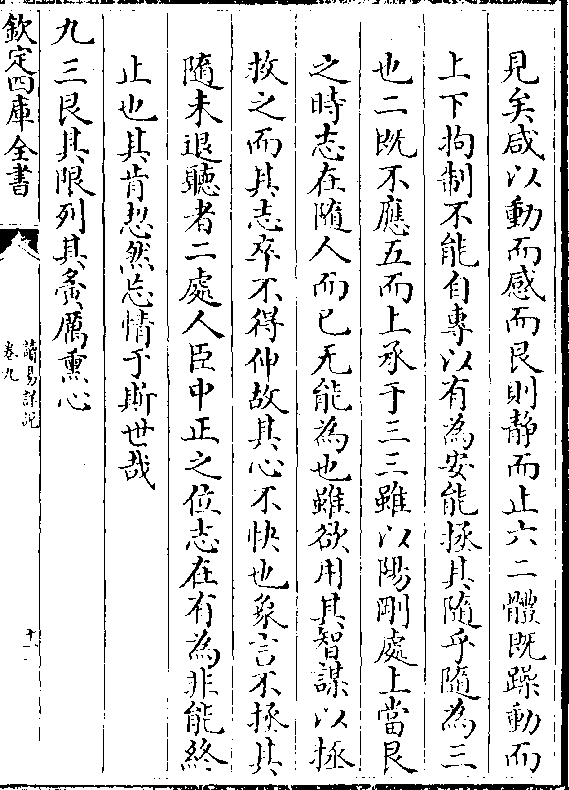 見矣咸以動而感而艮則静而止六二體既躁動而
上下拘制不能自專以有為安能拯其隨乎隨為三
也二既不應五而上承于三三雖以陽剛處上當艮
之時志在隨人而已无能為也雖欲用其智謀以拯
救之而其志卒不得伸故其心不快也象言不拯其
隨未退聽者二處人臣中正之位志在有為非能終
止也其肯恝然忘情于斯世哉
九三艮其限列其夤厲熏心
欽定四庫全書
讀易詳說
卷九
十一